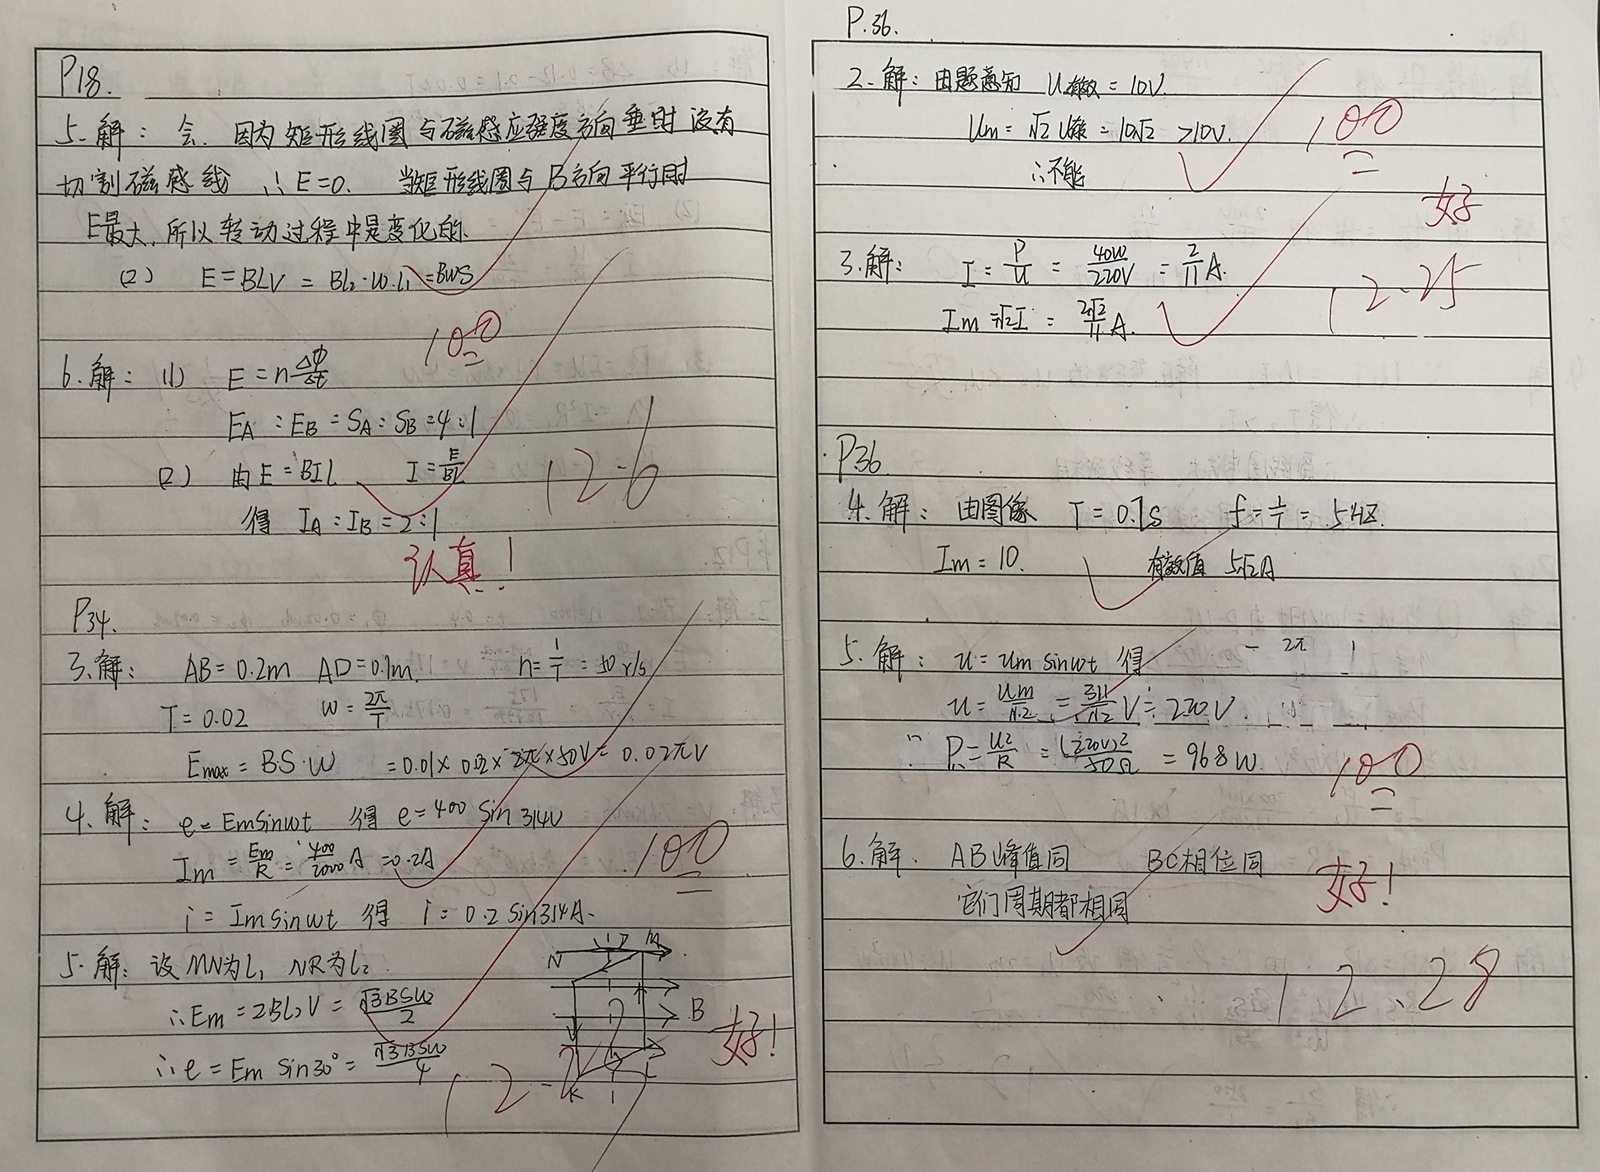 P18.
5.解: 会. 因为矩形线圈与磁感应强度方向垂时没有
切割磁感线 ∴E=0. 当矩形线圈与B方向平行时
E最大,所以转动过程中是变化的.
(2) E=BLV = Bl₂·ω·l₁=BωS
100
6.解: (1) E=nΔΦ/Δt
EA:EB=SA:SB=4:1
(2) 由E=BIL I=E/BL
得 IA:IB=2:1
12-6
认真!
P34.
3.解: AB=0.2m AD=0.1m. n=1/T=50 r/s
T=0.02 ω=2π/T
Emax=BS·ω =0.01×0.02×2π×50V=0.02πV
4.解: e=Emsinωt 得 e=400 Sin 314V
Im=Em/R=400/2000 A=0.2A
100
i=Imsinωt 得 i=0.2 Sin314A.
5.解: 设MN为l₁ NR为l₂.
∴Em=2Bl₂V=√3BSω/2
∴e=Em Sin30°=√3BSω/4
N M
B
K L
好!
P.36.
2.解: 由题意知 U有效=10V.
Um=√2U有效=10√2 >10V.
∴不能
100
好
3.解: I=P/U=40W/220V=2/11 A.
Im=√2I=2√2/11 A.
12-25
P36.
4.解: 由图像 T=0.2s f=1/T=5Hz.
Im=10. 有效值 5√2A
5.解: u=um sinωt 得
u=um/√2=311/√2 V=220V.
∴ P=U²/R=(220V)²/50Ω=968W.
100
6.解. AB峰值同 BC相位同
它们周期都相同
好!
12.28